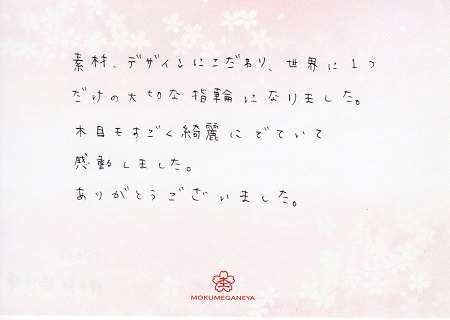 素材、デザインにこだわり、世界に1つ
だけの大切な指輪になりました。
木目もすごく綺麗にでていて
感動しました。
ありがとうございました。
MOKUMEGANEYA